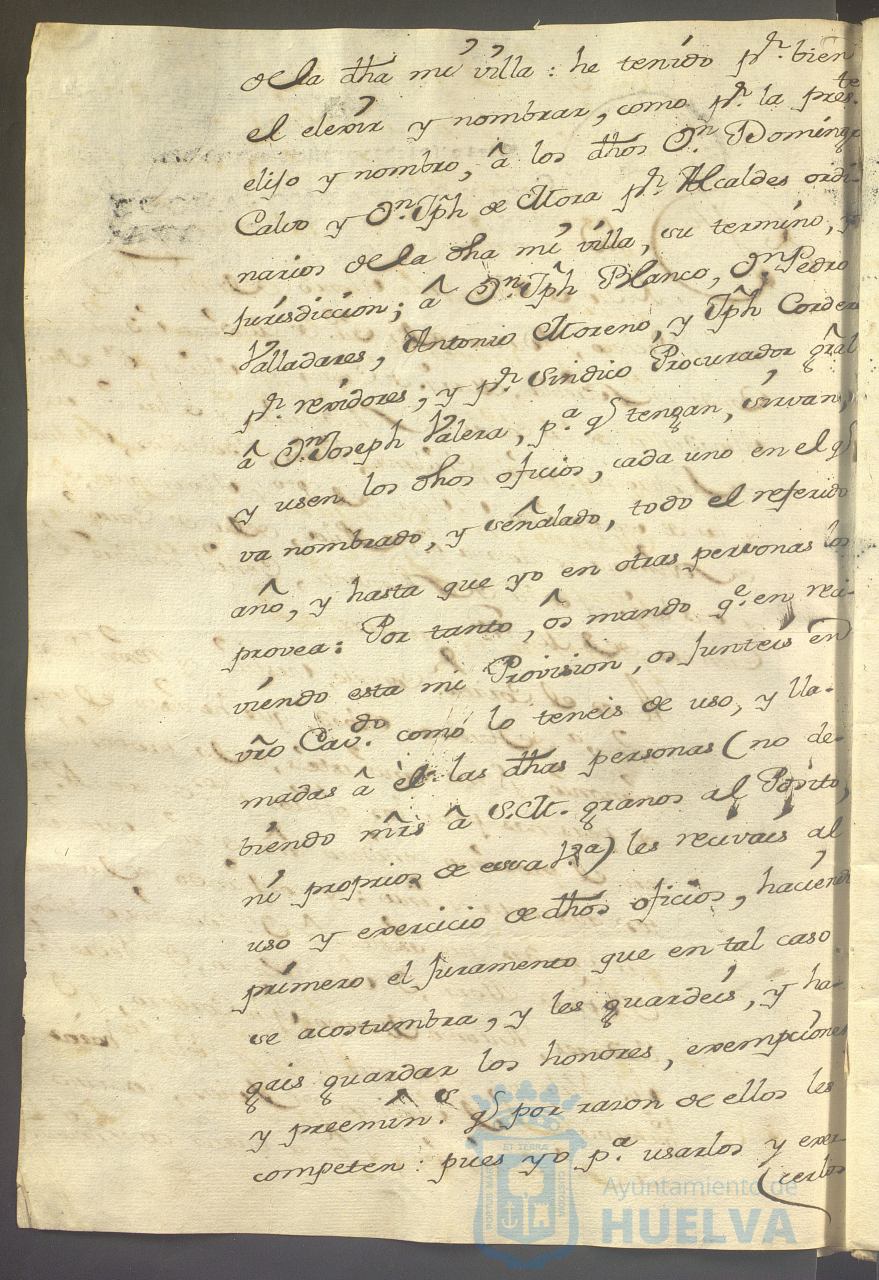 de la dha mi villa: he tenido pr. bien
el elexir y nombrar, como pr. la preste.
elijo y nombro, â los dhos Dn Doming
Calvo y Dn. Jph de Mora pr. Alcaldes ordi-
narios de la dha mi villa, su termino, y
jurisdiccion; â Dn. Jph Blanco, Dn Pedro
Valladares, Antonio Moreno, y Jph Corder
pr. rexidores; y pr. Sindico Procurador gral
â Dn. Joseph Valera, pa. q tengan, sirvan,
y usen los dhos oficios, cada uno en el q
va nombrado, y señalado, todo el referido
año, y hasta que yo en otras personas los
provea: Por tanto, ôs mando qe. en reci-
viendo esta mi Provision, os junteis en
vro Cavdo. como lo teneis de uso, y lla-
madas â èl las dhas personas (no de-
biendo mrs â S.M. granos al Posito,
ni proprios de essa Va) les recivais al
uso y exercicio de dhos oficios, haciend
primero el juramento que en tal caso
se acostumbra, y les guardeis, y ha-
gais guardar los honores, exempciones
y preemins. q por razon de ellos les
competen: pues yo pa. usarlos y exer
(cerlos
ET TERRAE
Ayuntamiento de
HUELVA